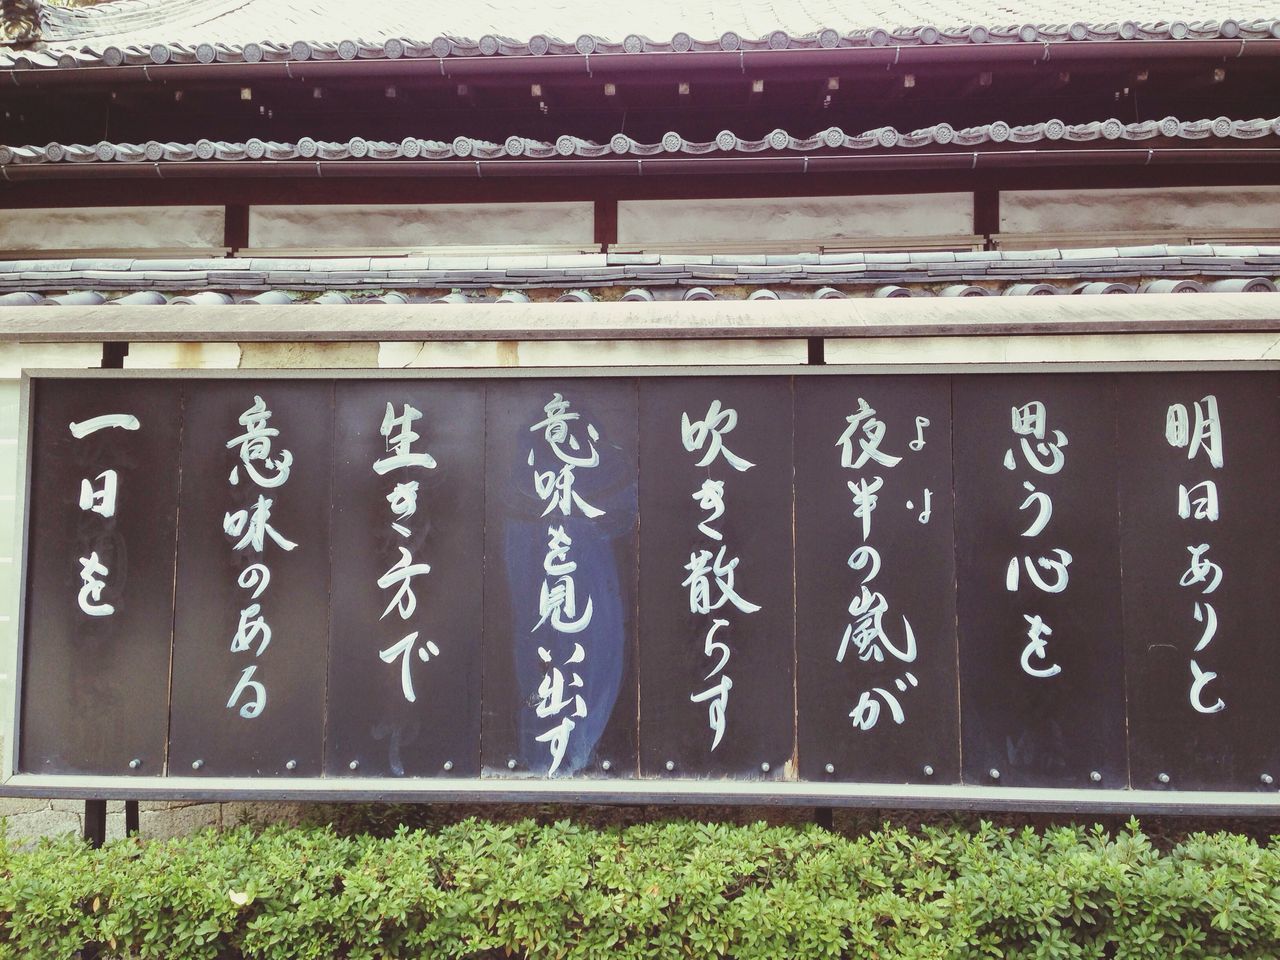 明日ありと
思う心を
夜半の嵐が
よよ
吹き散らす
意味を見い出す
生き方で
意味のある
一日を